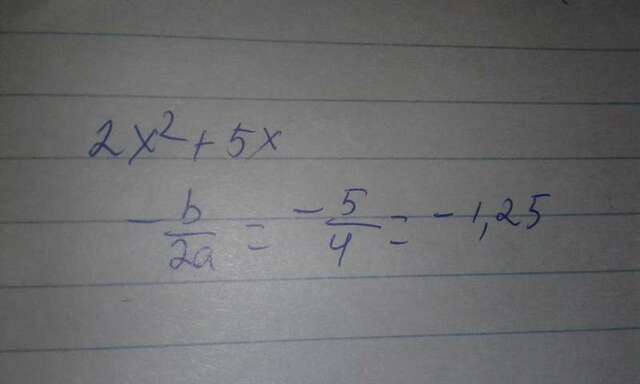 2x² + 5x
-b/2a = -5/4 = -1,25